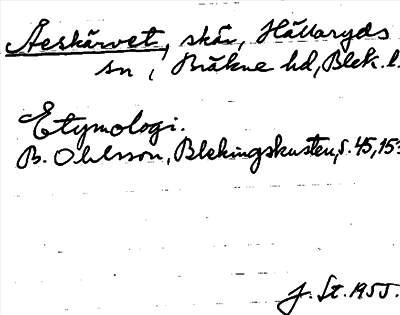 Åeskärvet, skär, Hällaryds
sn, Bräkne hd, Blek. l.
Etymologi.
B. Ohlsson, Blekingskusten, s. 45, 153
J. St. 1955.